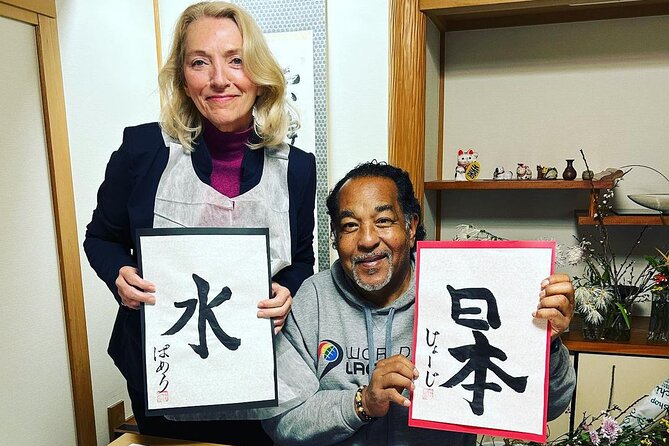 水
ぱめら
日本
じょーじ
WORL
LAC